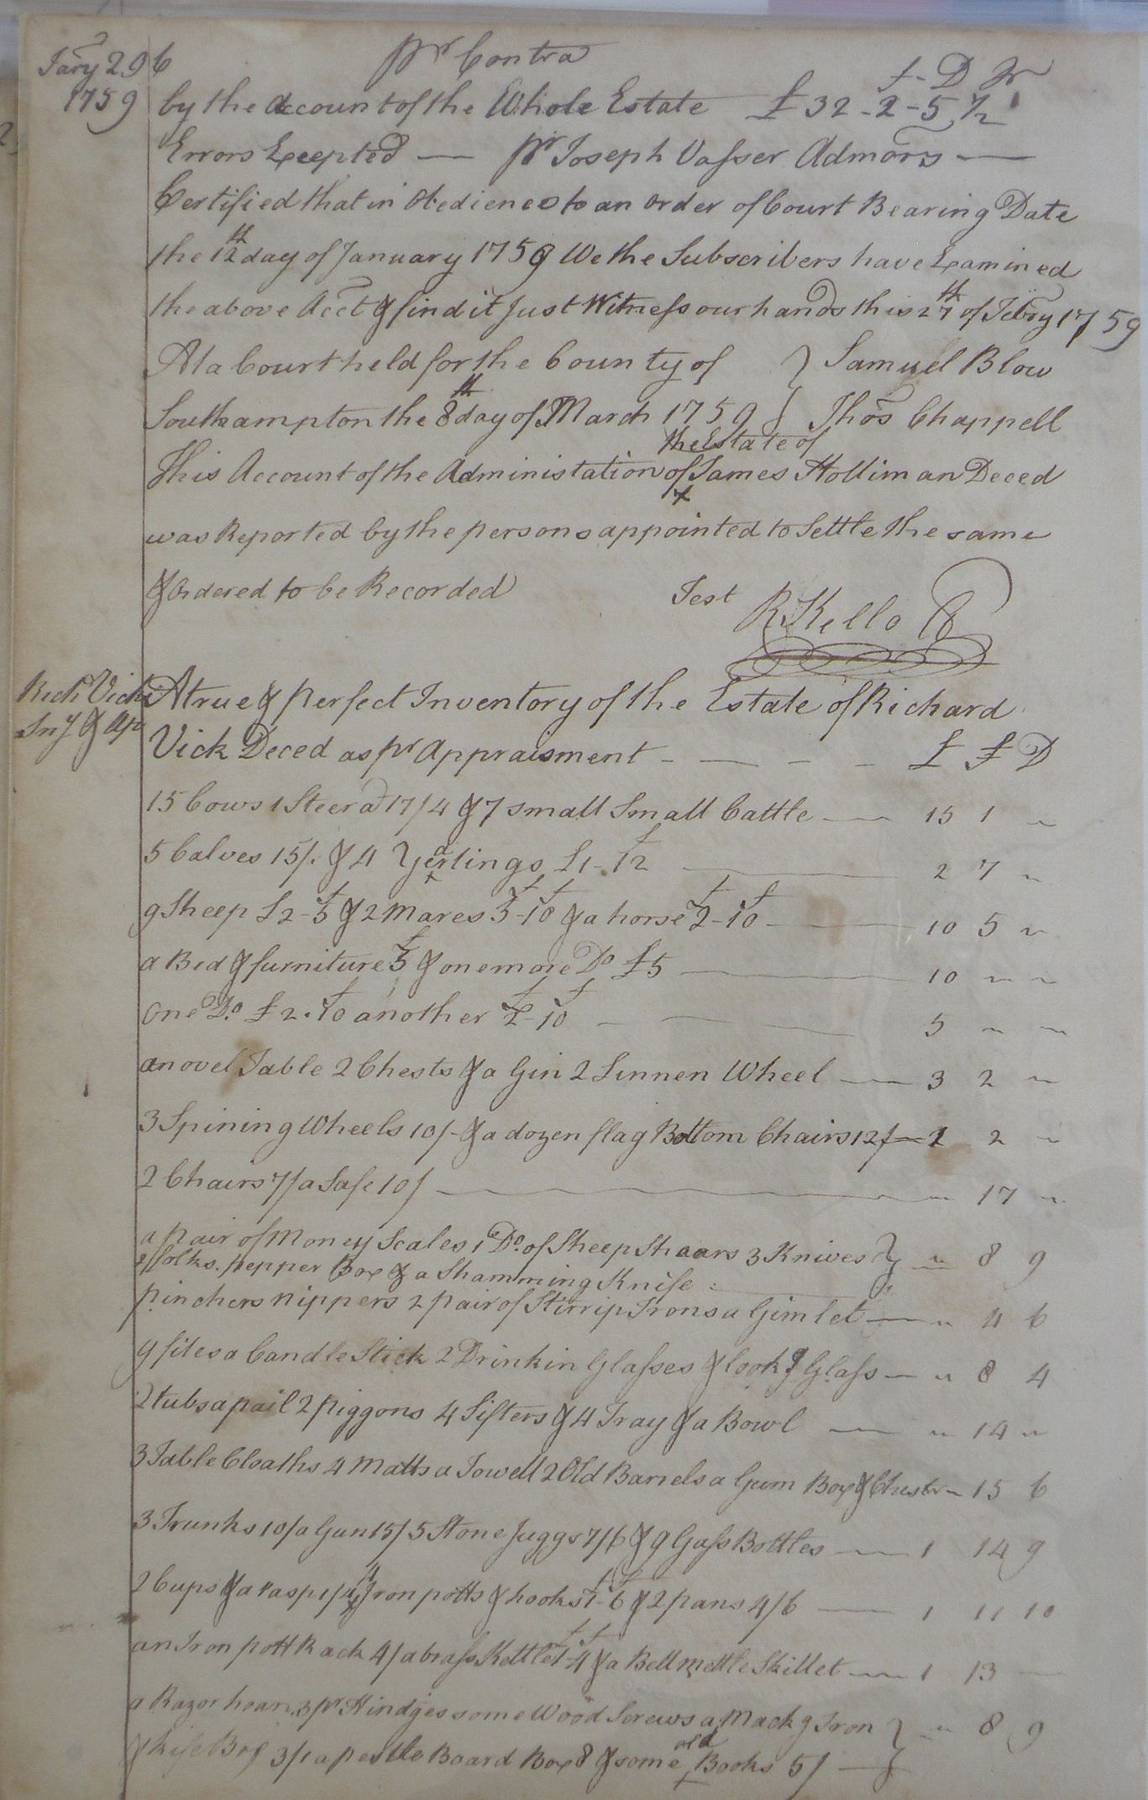 Jary 29 6 pr Contra
£ - D Fr
1759 by the Account of the Whole Estate £ 32 - 2 - 5 1/2
Errors Excepted — pr Joseph Vasser Admors —
Certified that in Obedience to an Order of Court Bearing Date
the 12th day of January 1759 We the Subscribers have Examined
the above Acct & find it Just Witness our hands this 27th of Febry 1759
At a Court held for the County of } Samuel Blow
Southampton the 8th day of March 1759 { Thos Chappell
the Estate of
This Account of the Administation of James Holliman Deced
x
was Reported by the persons appointed to Settle the same
& Ordered to be Recorded Test R Kello
Richd Vicks A true & perfect Inventory of the Estate of Richard
Inv. & Ap Vick Deced as pr Appraisment - — - - £ £ D
15 Cows 1 Steer a 17/4 & 7 small Small Cattle — 15 1 ~
5 Calves 15/. & 4 Yearlings £1-12 — 2 7 ~
9 Sheep £2-5 & 2 Mares 3-10 & a horse 2-10 — 10 5 ~
a Bed & furniture 5 & one more Do £5 — 10 ~ ~
One Do £2.10 another 2-10 - — — 5 ~ ~
an ovel Table 2 Chests & a Gin 2 Linnen Wheel — 3 2 ~
3 Spining Wheels 10/- & a dozen flag Bottom Chairs 12/ — 1 2 ~
2 Chairs 7/ a Safe 10/ — ~ 17 ~
a pair of Money Scales 1 Do. of Sheep Shaars 3 Knives } ~ 8 9
2 folks. pepper Box & a Shamming Knife
pinchers nippers 2 pair of Stirrip Irons a Gimlet — ~ 11 6
9 files a Candle Stick 2 Drinkin Glasses & lookg Glass — ~ 8 4
2 tubs a pail 2 piggons 4 Sifters & 4 Tray & a Bowl — ~ 14 ~
3 Table Cloaths 4 Matts a Towell 2 Old Barrels a Gum Box & Chest ~ 15 6
3 Trunks 10/ a Gun 15/ 5 Stone Juggs 7/6 & 9 Gass Bottles — 1 14 9
2 Cups & a rasp 1/4 Iron potts & hooks 1-6 & 2 pans 4/6 — 1 11 10
an Iron pott Rack 4/ a brass Kettle 1-4 & a Bell mettle Skillet — 1 13 —
a Razor hoan 3 pr Hindges some Wood Screws a Mackg Iron } ~ 8 9
old
Box 3/ a pestle Board Box 8 & some Books 5/ —